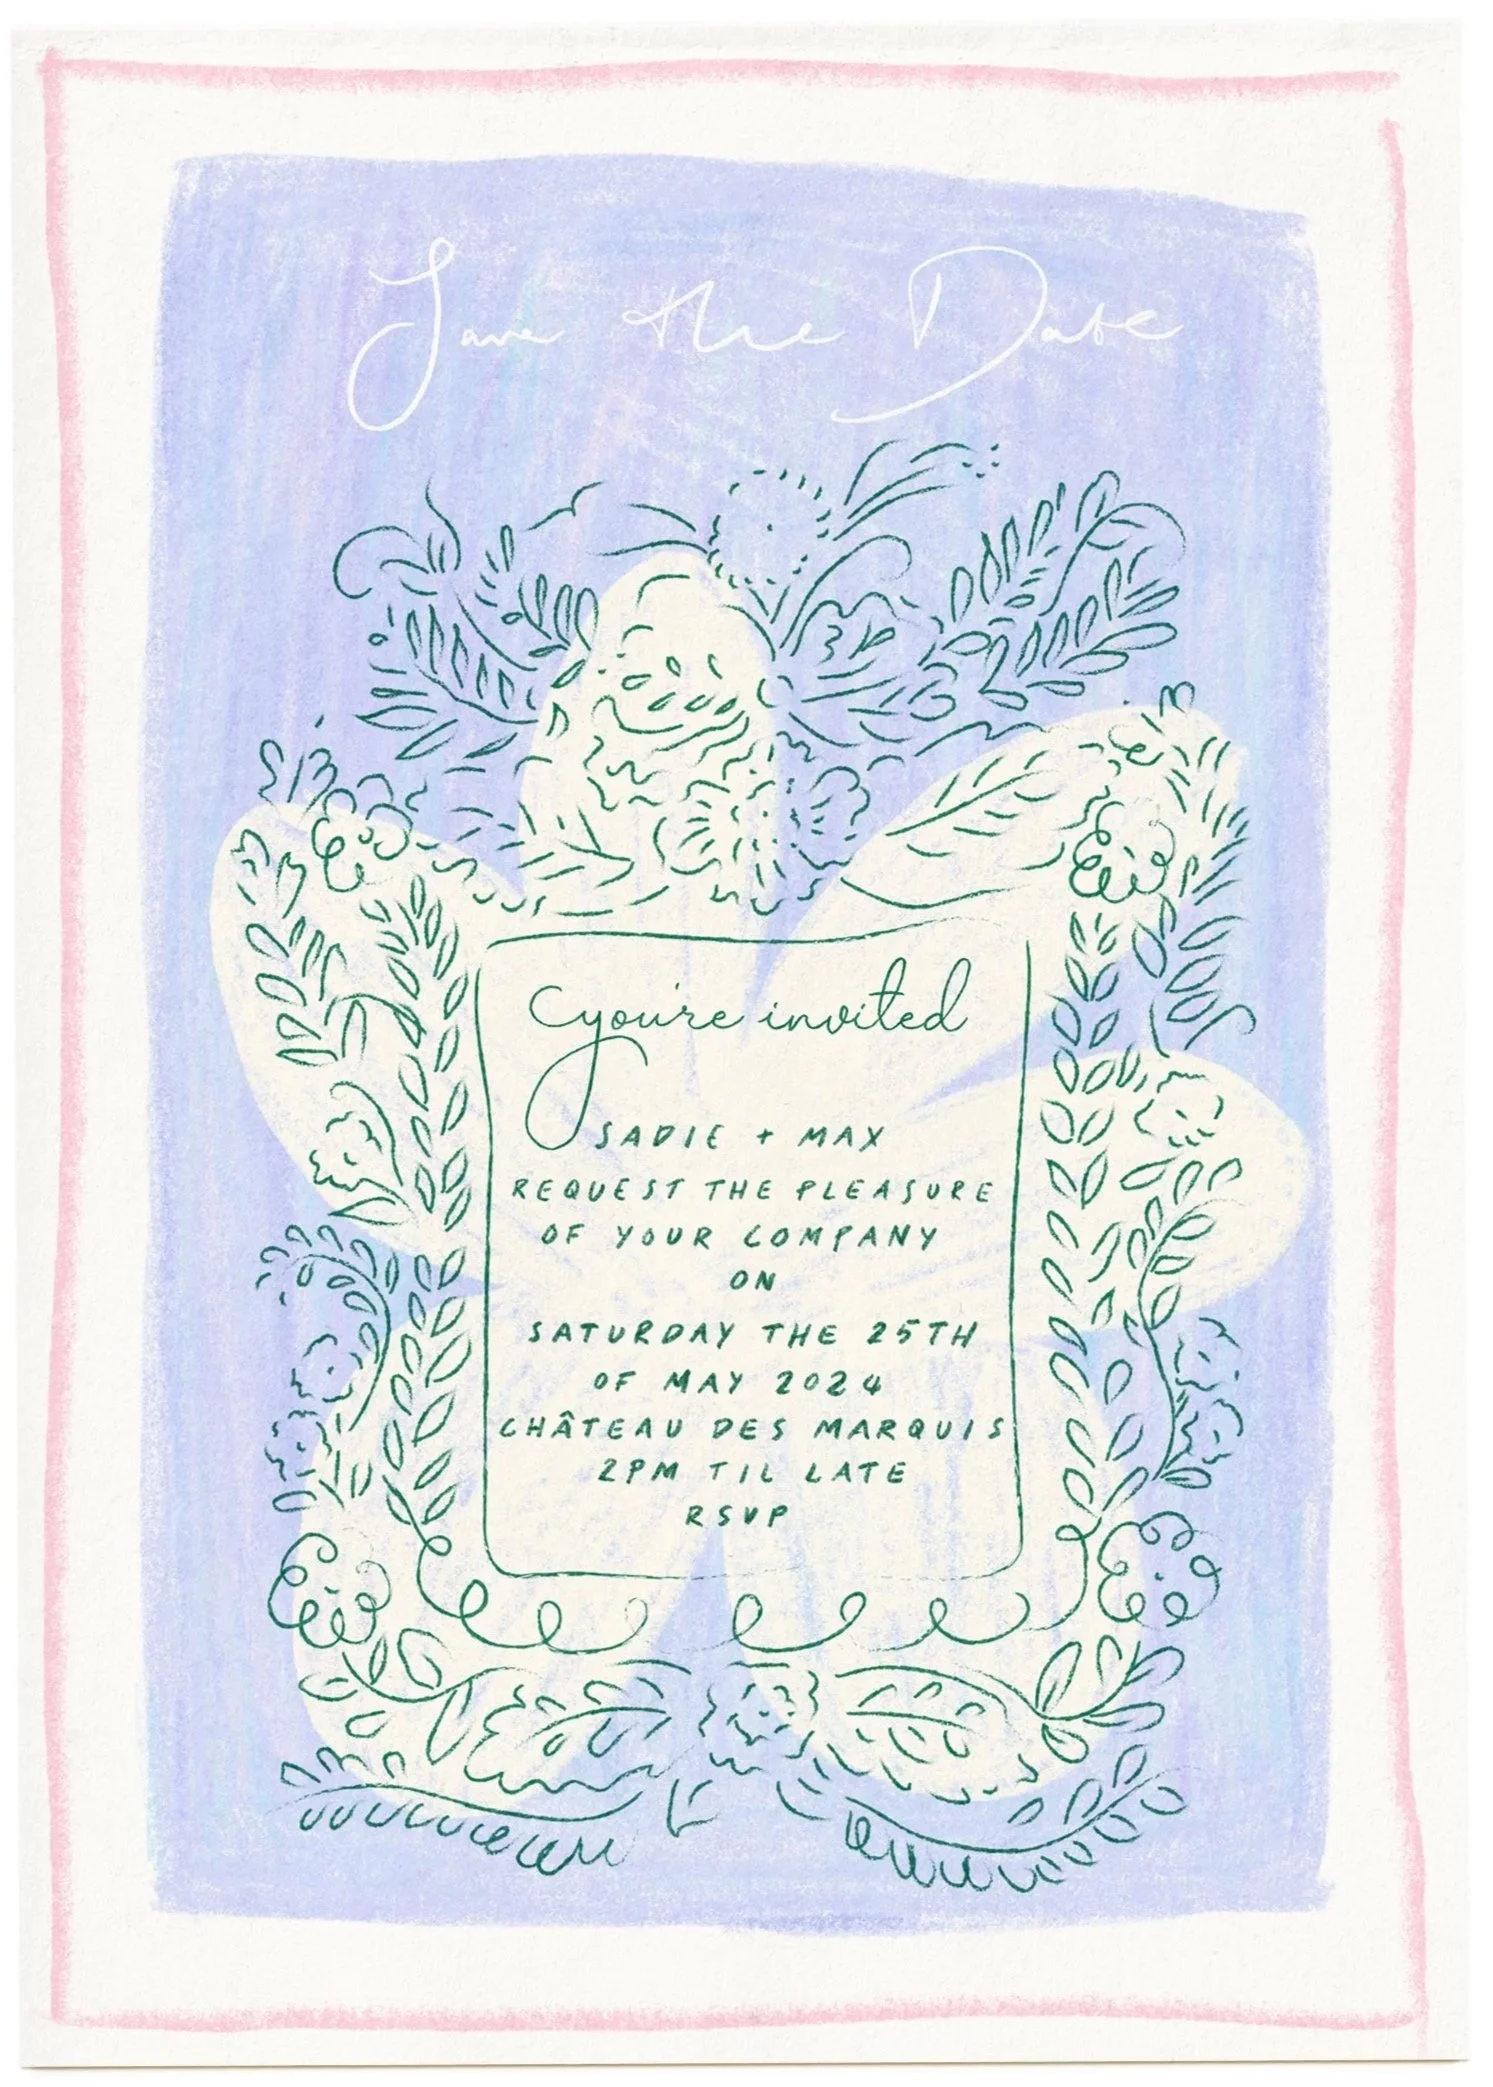 Save the Date
you're invited
SADIE + MAX
REQUEST THE PLEASURE
OF YOUR COMPANY
ON
SATURDAY THE 25TH
OF MAY 2024
CHÂTEAU DES MARQUIS
2PM TIL LATE
RSVP